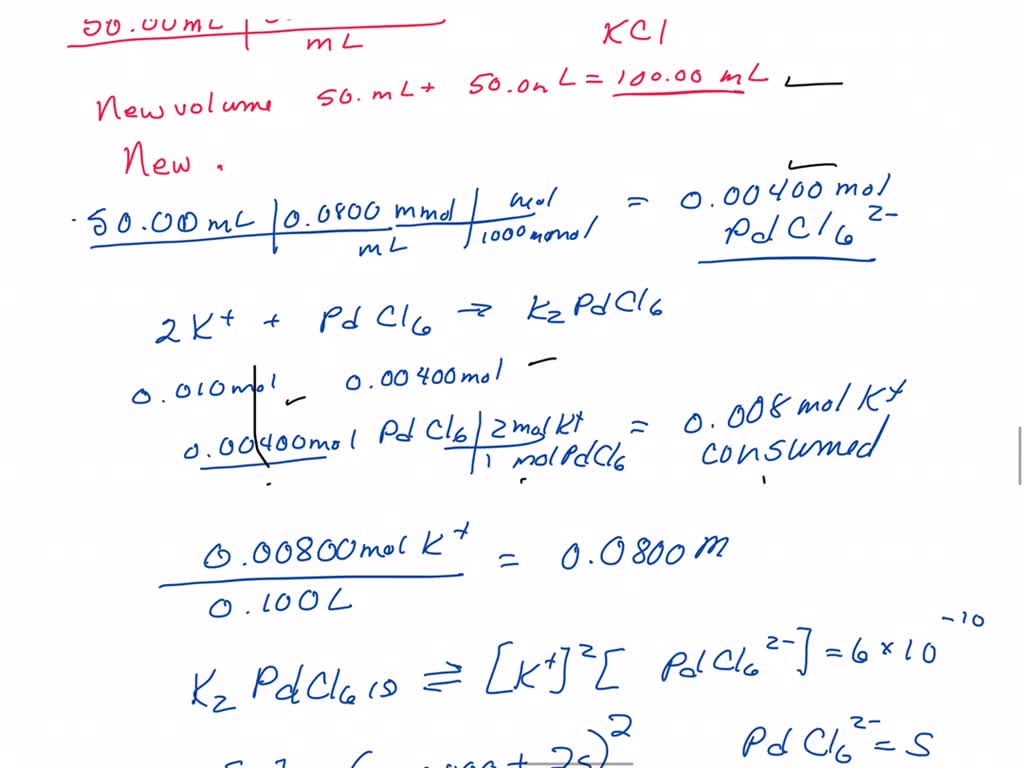 50.00mL
mL
KCl
New volume 50.mL+ 50.0n L = 100.00 mL
New .
50.00 mL | 0.0800 mmol / mL | mol / 1000 mmol = 0.00400 mol PdCl6 2-
2K+ + PdCl6 → K2PdCl6
0.010mol 0.00400mol
0.00400mol PdCl6 | 2 mol K+ / 1 mol PdCl6 = 0.008 mol K+ consumed
0.00800 mol K+ / 0.100L = 0.0800 M
K2PdCl6 (s) ⇌ [K+]2 [PdCl6 2-] = 6 × 10 -10
+ 2s)2
PdCl6 2- = S